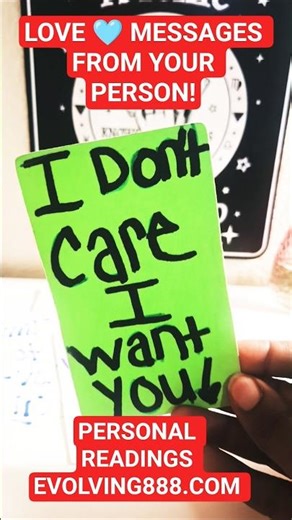 LOVE 🩵 MESSAGES
FROM YOUR
PERSON!
I Don't
Care
I
want
you
PERSONAL
READINGS
EVOLVING888.COM